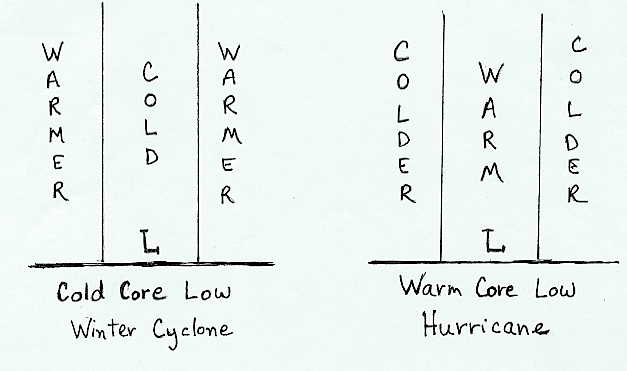 WARMER
COLD
WARMER
L
Cold Core Low
Winter Cyclone
COLDER
WARM
COLDER
L
Warm Core Low
Hurricane